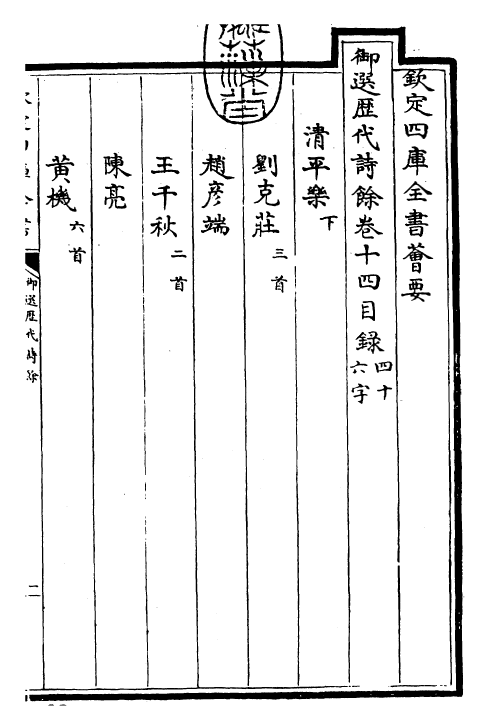 欽定四庫全書薈要
御選歴代詩餘卷十四目録 四十六字
清平樂 下
劉克莊 三首
趙彦端
王千秋 二首
陳亮
黄機 六首
御選歴代詩餘